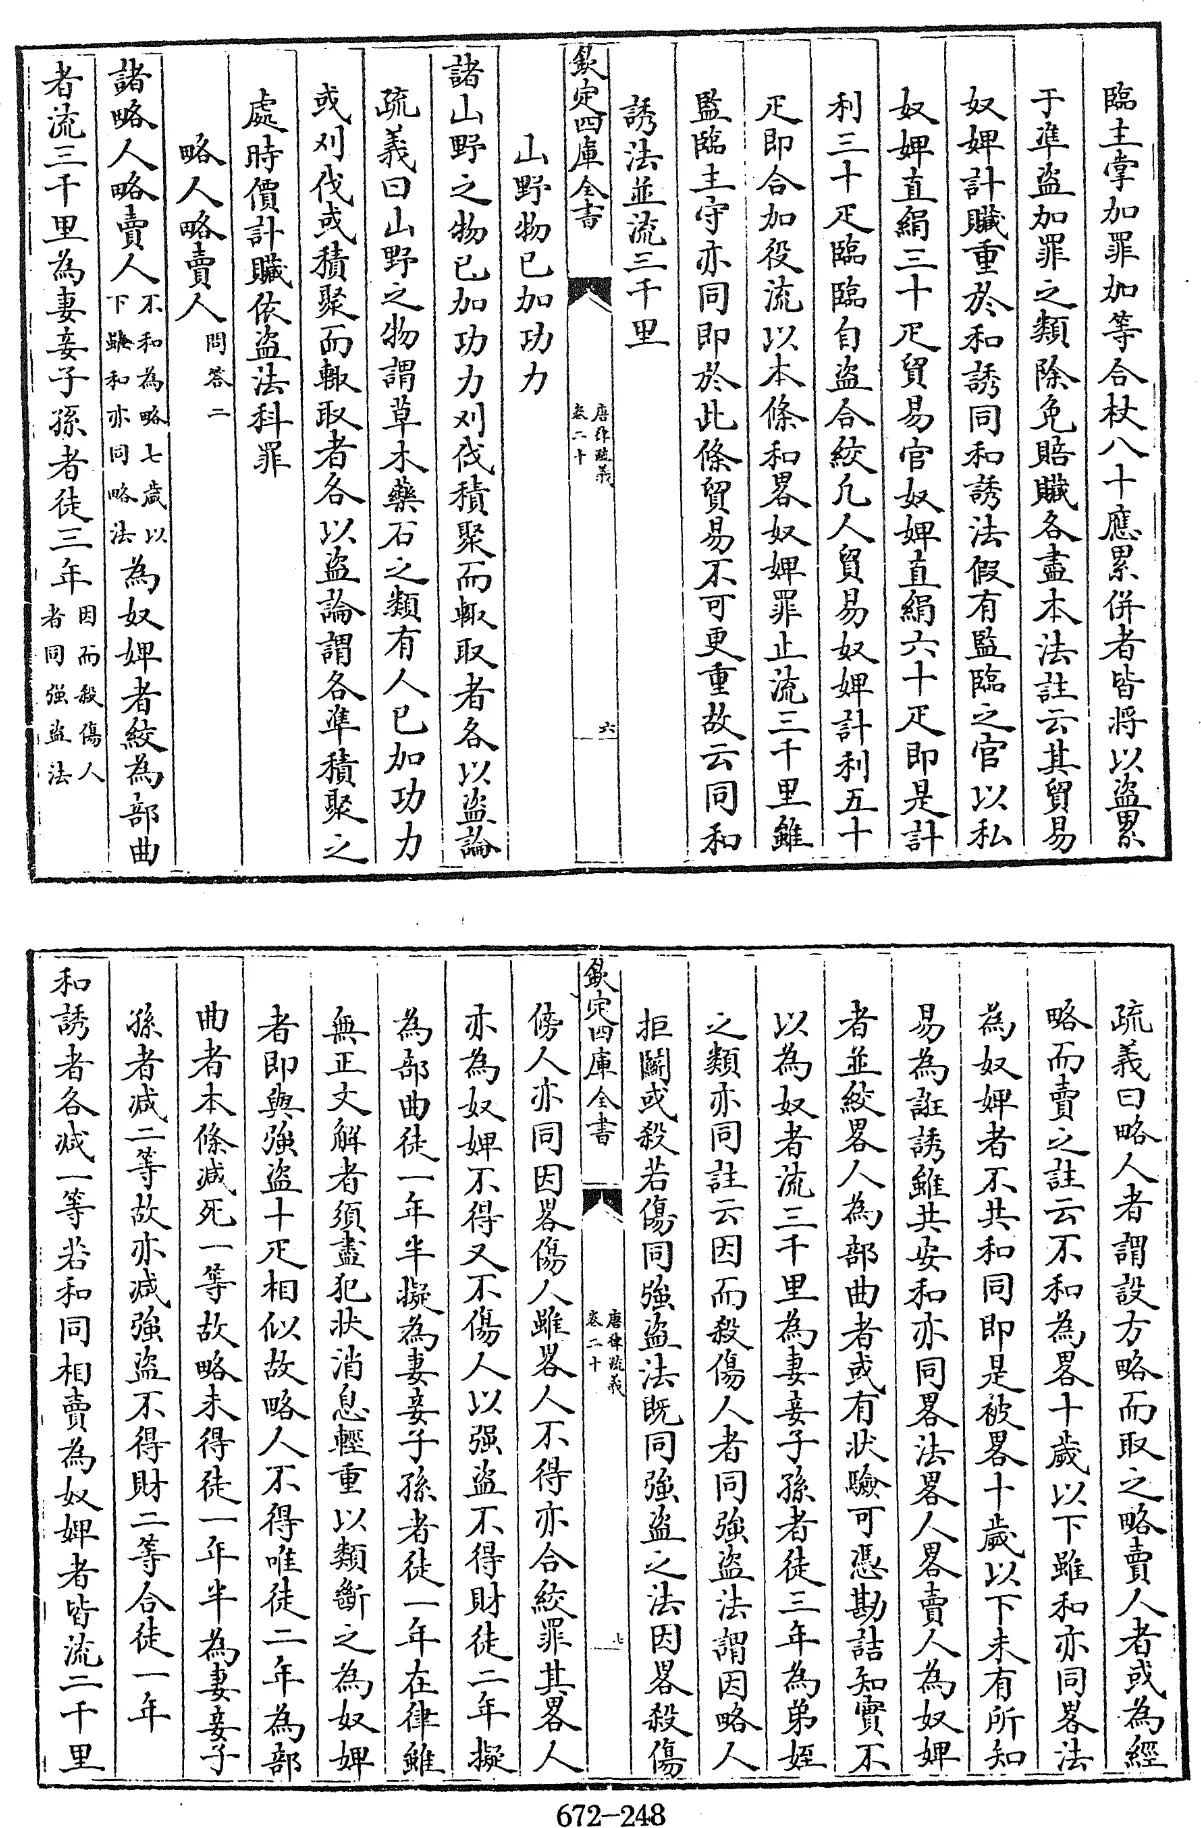 臨主掌加罪加等合杖八十應累併者皆將以盜累
于準盜加罪之類除免賠贓各盡本法註云其貿易
奴婢計贓重於和誘同和誘法假有監臨之官以私
奴婢直絹三十疋貿易官奴婢直絹六十疋即是計
利三十疋臨臨自盜合絞凡人貿易奴婢計利五十
疋即合加役流以本條和畧奴婢罪止流三千里雖
監臨主守亦同即於此條貿易不可更重故云同和
誘法並流三千里
欽定四庫全書
唐律疏義
卷二十
六
山野物已加功力
諸山野之物已加功力刈伐積聚而輙取者各以盜論
疏義曰山野之物謂草木藥石之類有人已加功力
或刈伐或積聚而輙取者各以盜論謂各準積聚之
處時價計贓依盜法科罪
略人略賣人問答二
諸略人略賣人不和為略七歲以下雖和亦同略法為奴婢者絞為部曲
者流三千里為妻妾子孫者徒三年因而殺傷人者同強盜法
疏義曰略人者謂設方略而取之略賣人者或為經
略而賣之註云不和為畧十歲以下雖和亦同畧法
為奴婢者不共和同即是被畧十歲以下未有所知
易為誑誘雖共安和亦同畧法畧人畧賣人為奴婢
者並絞畧人為部曲者或有狀驗可憑勘詰知實不
以為奴者流三千里為妻妾子孫者徒三年為弟姪
之類亦同註云因而殺傷人者同強盜法謂因略人
拒鬭或殺若傷同強盜法既同強盜之法因畧殺傷
欽定四庫全書
唐律疏義
卷二十
七
傍人亦同因畧傷人雖畧人不得亦合絞罪其畧人
亦為奴婢不得又不傷人以强盜不得財徒二年擬
為部曲徒一年半擬為妻妾子孫者徒一年在律雖
無正文解者須盡犯狀消息輕重以類斷之為奴婢
者即與強盜十疋相似故略人不得唯徒二年為部
曲者本條減死一等故略未得徒一年半為妻妾子
孫者減二等故亦減強盜不得財二等合徒一年
和誘者各減一等若和同相賣為奴婢者皆流二千里
672-248